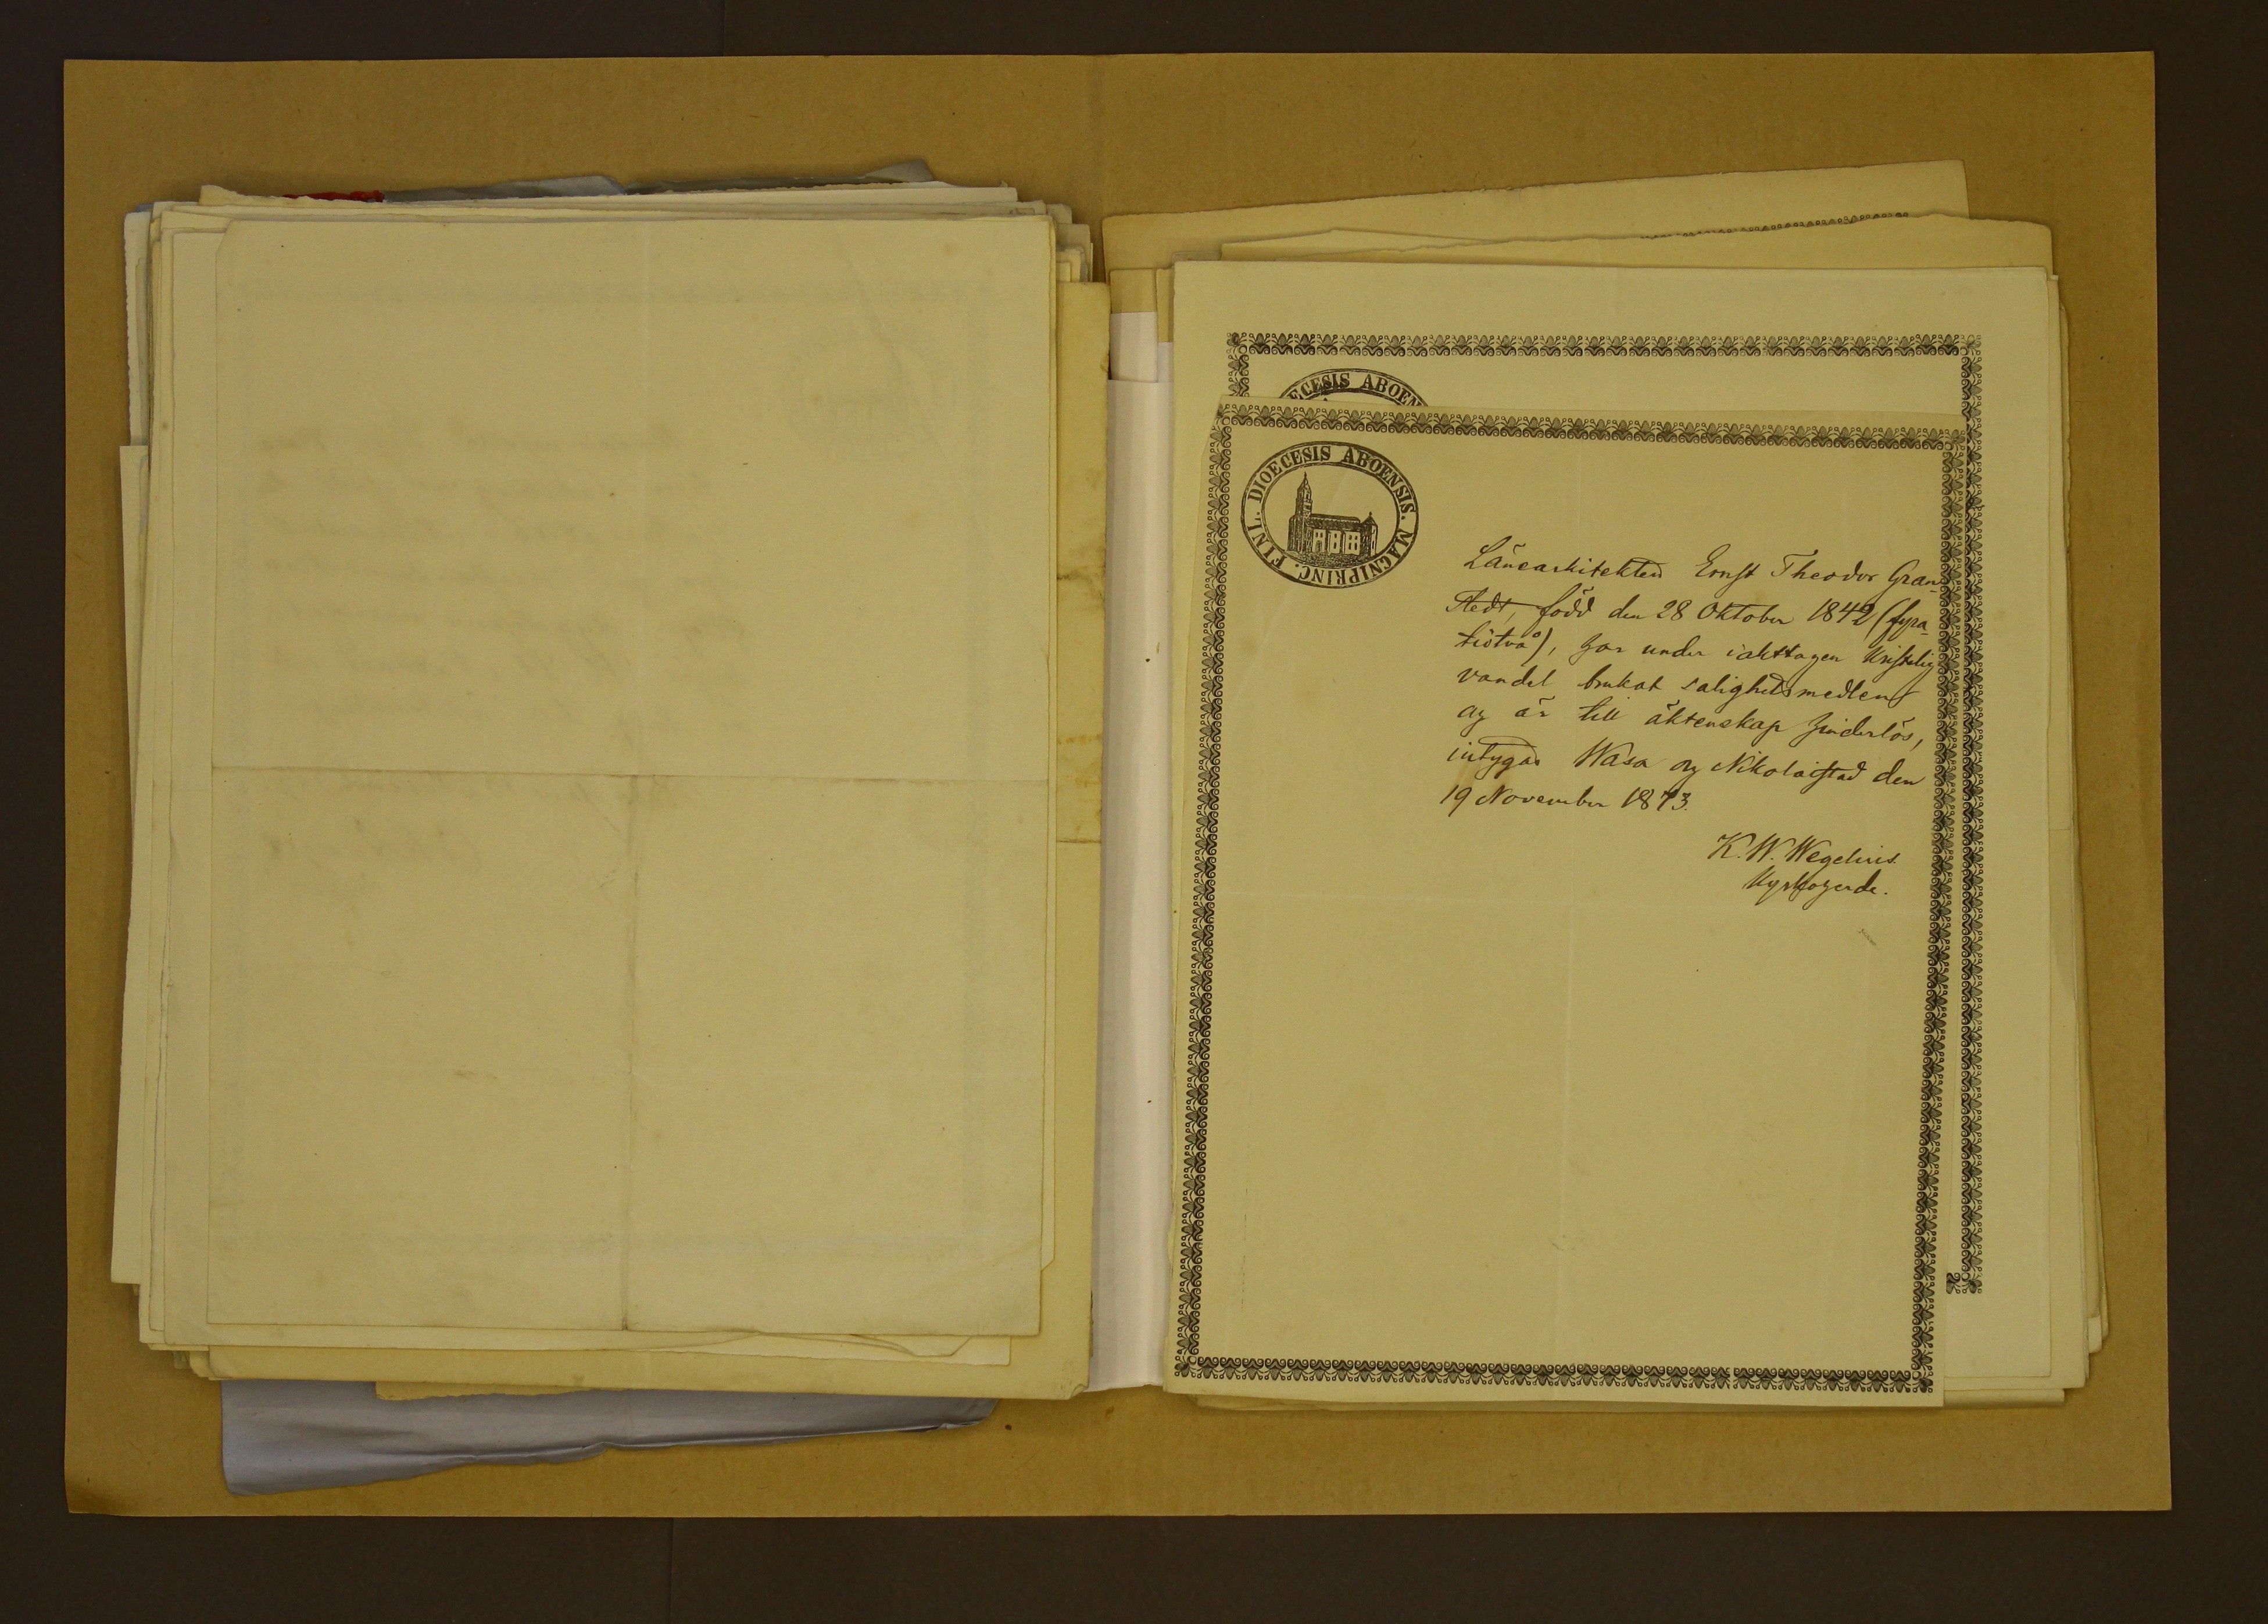 ECESIS ABOEN
DIOECESIS ABOENSIS. MAGNIPRINC. FINL.
Länearkitekten Ernst Theodor Gran-
stedt, född den 28 Oktober 1842 (fyra-
tiotvå), har under iakttagen kristelig
vandel brukat salighetsmedlen
och är till äktenskap hinderlös,
intygas Wasa och Nikolaistad den
19 November 1873.
K. W. Wegelius.
Kyrkoherde.